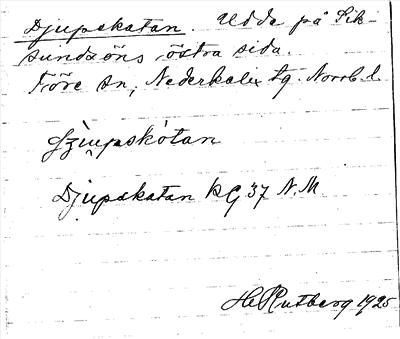 Djupskatan. Udde på Sik-
sundsöns östra sida.
Töre sn, Nederkalix tg. Norrb. l.
Djupskatan kG 37 N.M.
H Rutberg 1925